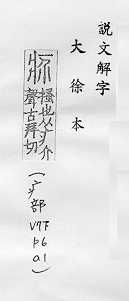 說文解字
大徐本
疥
搔也从疒介
聲古拜切
(疒部
V7下
p6
a1)